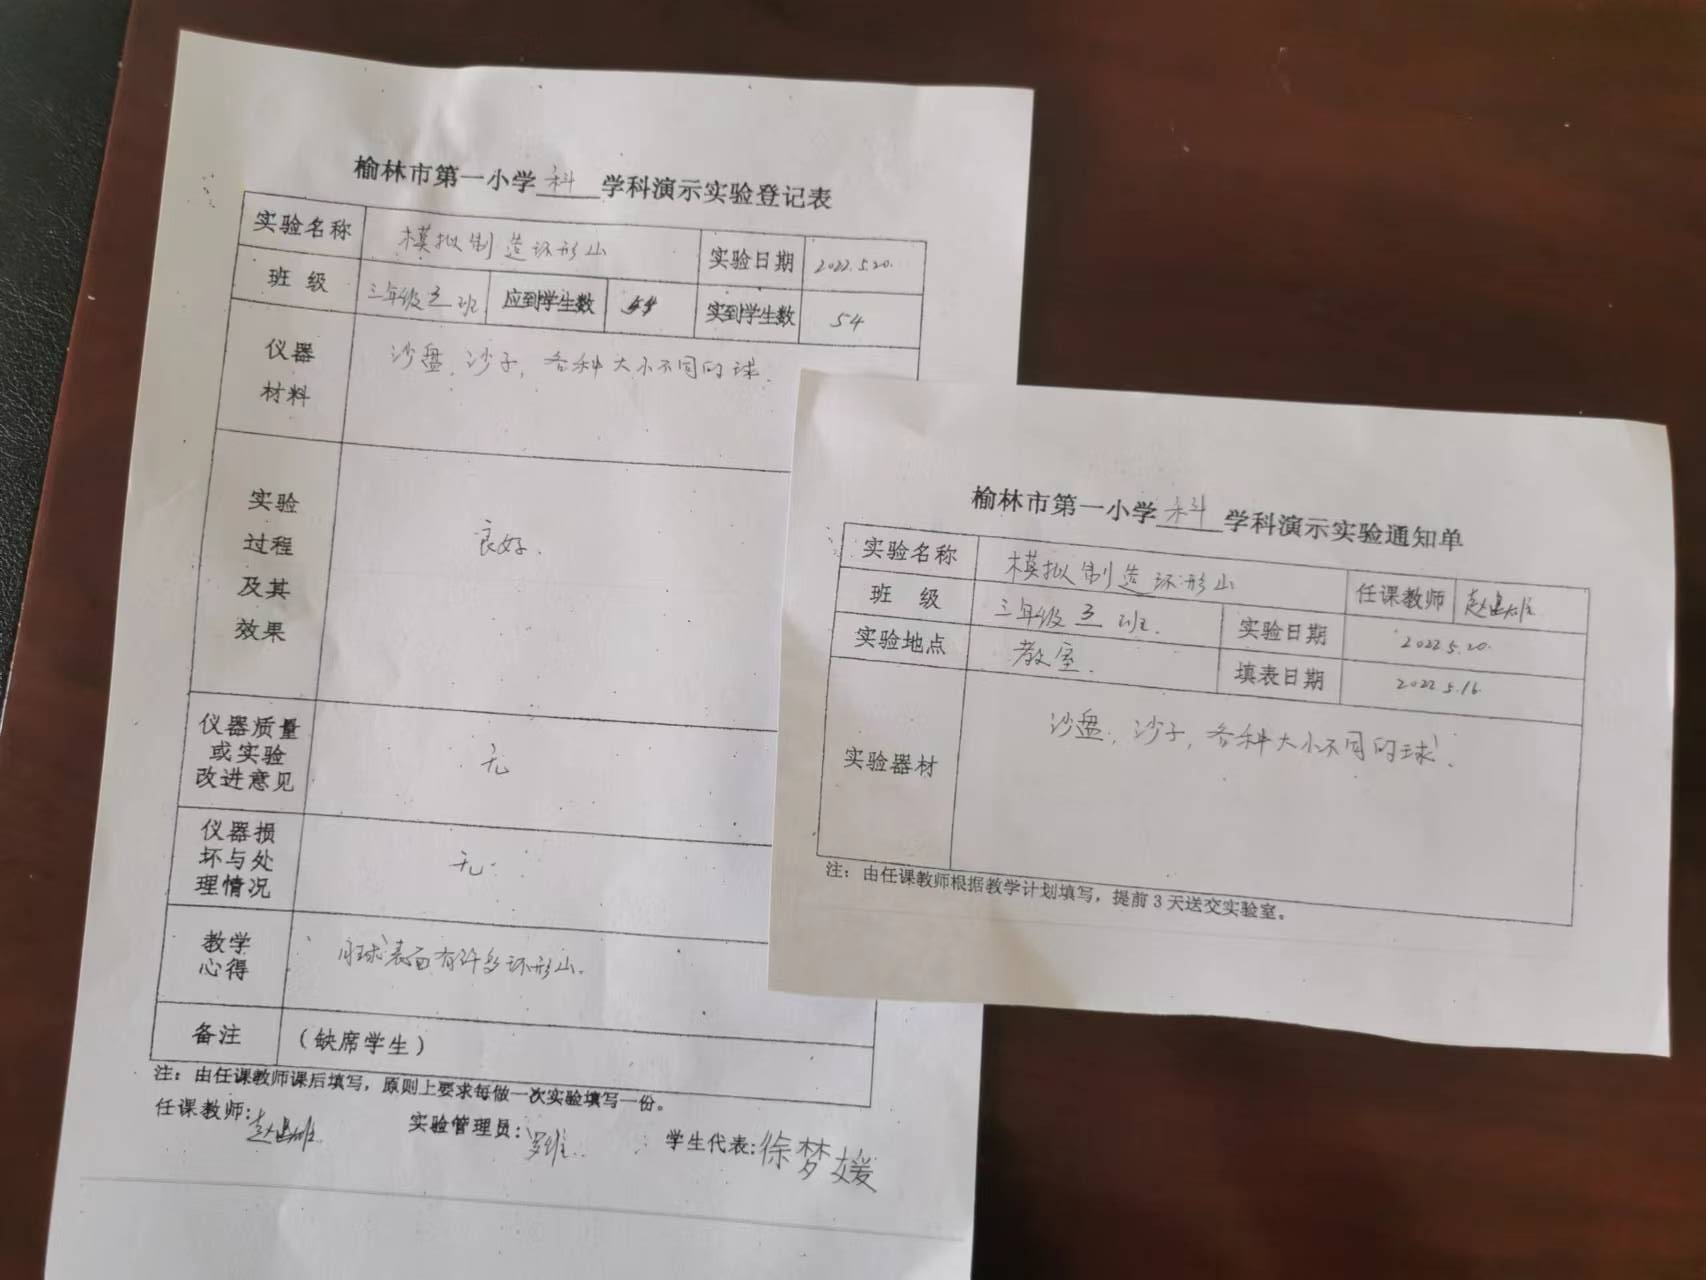 榆林市第一小学 科 学科演示实验登记表
实验名称 模拟制造环形山 实验日期 2022.5.20.
班 级 三年级 班 应到学生数 54 实到学生数 54
仪器
材料
沙盘、沙子, 各种大小不同的球.
实验
过程
及其
效果
良好.
仪器质量
或实验
改进意见
无
仪器损
坏与处
理情况
无.
教学
心得
月球表面有许多环形山.
备注 (缺席学生)
注：由任课教师课后填写，原则上要求每做一次实验填写一份。
任课教师: 实验管理员: 学生代表:徐梦媛
榆林市第一小学 科 学科演示实验通知单
实验名称 模拟制造环形山 任课教师
班 级 三年级 班. 实验日期 2022.5.20.
实验地点 教室. 填表日期 2022.5.16.
实验器材
沙盘, 沙子, 各种大小不同的球.
注：由任课教师根据教学计划填写，提前3天送交实验室。